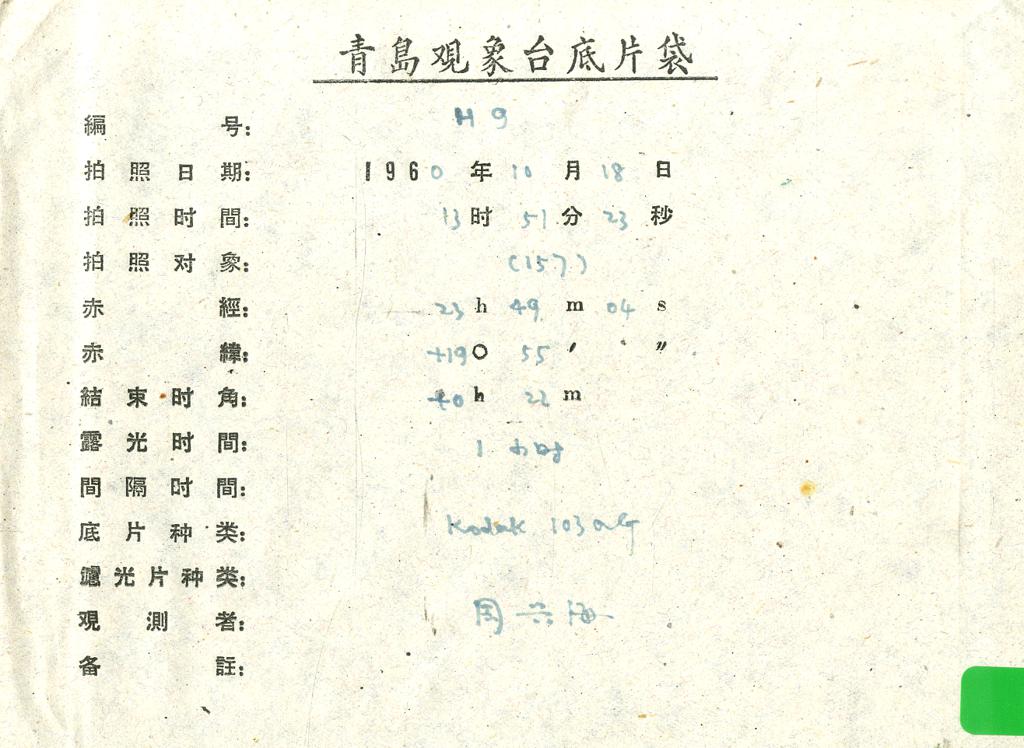 青島观象台底片袋
編号: H 9
拍照日期: 1960年10月18日
拍照时間: 13时51分23秒
拍照对象: (157)
赤經: 23h 49m 04s
赤緯: +19° 55′ ″
結束时角: +0h 22m
露光时間: 1 小时
間隔时間:
底片种类: Kodak 103aG
濾光片种类:
观測者: 周兴海
备註: